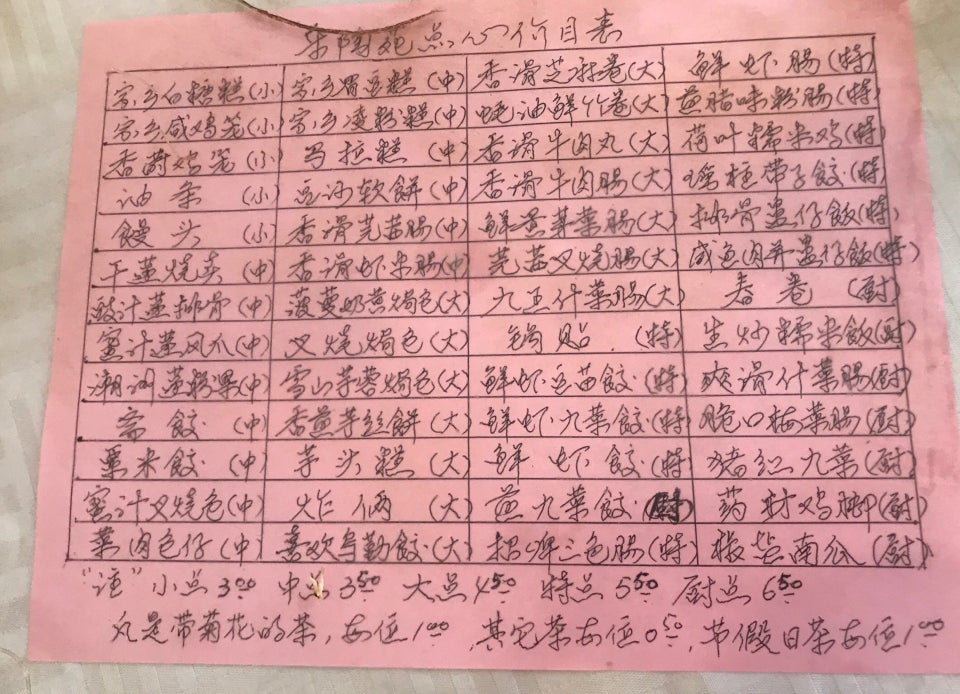 点心价目表
家乡白糖糕(小) 家乡眉豆糕(中) 香滑芝麻卷(大) 鲜虾肠(特)
家乡咸鸡笼(小) 家乡凌粉糕(中) 蚝油鲜竹卷(大) 煎腊味粉肠(特)
香茜鸡笼(小) 马拉糕(中) 香滑牛肉丸(大) 荷叶糯米鸡(特)
油条(小) 豆沙软餅(中) 香滑牛肉肠(大) 瑶柱带子餃(特)
馒头(小) 香滑芫茜肠(中) 鲜黄芽菜肠(大) 排骨盅仔飯(特)
干蒸烧卖(中) 香滑虾米肠(中) 芫茜叉烧肠(大) 咸鱼肉并盅仔飯(特)
豉汁蒸排骨(中) 菠萝奶黄焗包(大) 九王什菜肠(大) 春卷(厨)
蜜汁蒸凤爪(中) 叉烧焗包(大) 锅贴(特) 生炒糯米飯(厨)
潮州蒸粉果(中) 雪山芋蓉焗包(大) 鲜虾豆苗餃(特) 爽滑什菜肠(厨)
斋餃(中) 香煎芋丝餅(大) 鲜虾九菜餃(特) 脆口梅菜肠(厨)
粟米餃(中) 芋头糕(大) 鲜虾餃(特) 猪红九菜(厨)
蜜汁叉烧包(中) 炸俩(大) 煎九菜餃(厨) 药材鸡脚(厨)
菜肉包仔(中) 喜欢乌勒餃(大) 招牌三色肠(特) 椒盐南瓜(厨)
"注"小点3.00 中点3.50 大点4.50 特点5.50 厨点6.50
凡是带菊花的茶,每位1.00 其它茶每位0.50,节假日茶每位1.00